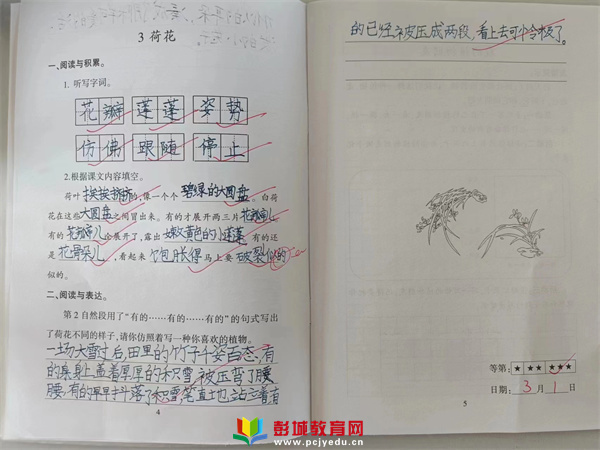 3 荷花
一、阅读与积累。
1. 听写字词。
花瓣 莲蓬 姿势
仿佛 跟随 停止
2.根据课文内容填空。
荷叶挨挨挤挤的,像一个个碧绿的大圆盘。白荷
花在这些大圆盘之间冒出来。有的才展开两三片花瓣儿,
有的花瓣儿全展开了,露出嫩黄色的小莲蓬 有的还
是花骨朵儿,看起来饱胀得马上要破裂似的
似的。
二、阅读与表达。
第2自然段用了“有的……有的……有的”的句式写出
了荷花不同的样子,请你仿照着写一种你喜欢的植物。
一场大雪过后,田里的竹子千姿百态,有
的身上盖着厚厚的积雪,被压弯了腰
腰,有的早早抖落了积雪,笔直地站着有
4
的已经被压成两段,看上去可怜极了。
等第: ★ ★★ ★★★
日期: 3月1日
5
彭城教育网
www.pcjyedu.cn